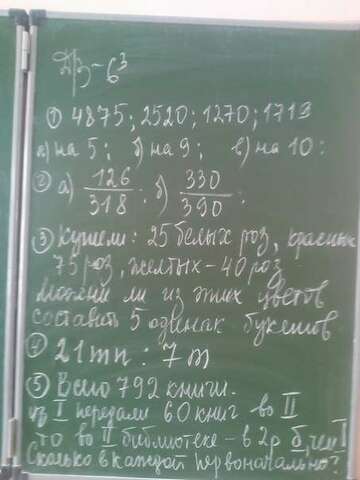 ДЗ-6³
① 4875; 2520; 1270; 1719
а) на 5; б) на 9; в) на 10:
② а) 126/318; б) 330/390:
③ Купили: 25 белых роз, красных
75 роз, желтых - 40 роз
можно ли из этих цветов
составить 5 одинак букетов
④ 21 тп : 7 т
⑤ Всего 792 книги.
из I передали 60 книг во II
то во II библиотеке - в 2р б, чем I
Сколько в каждой первоначально?